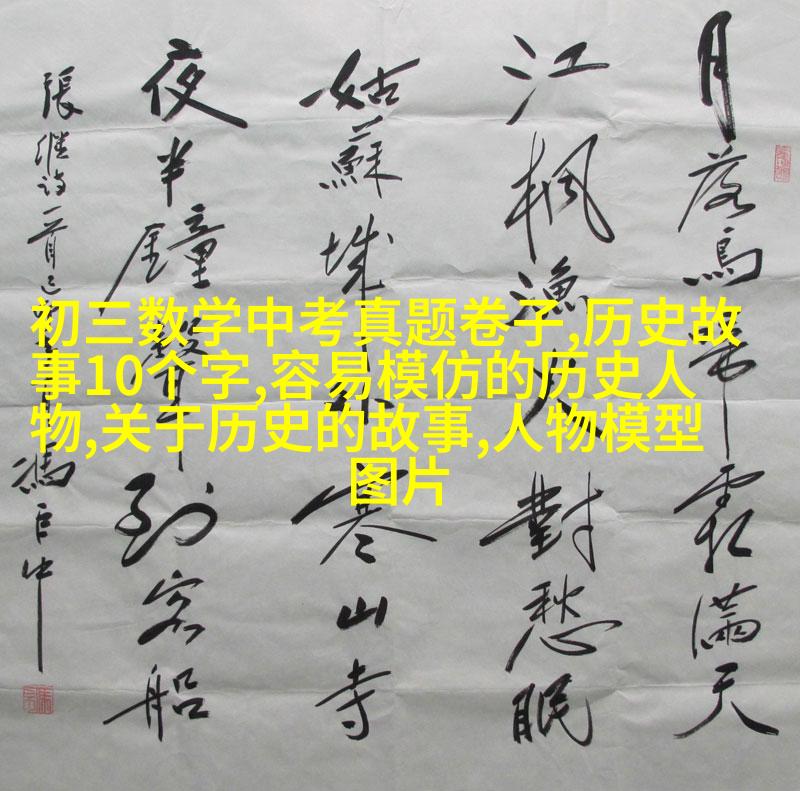 月落烏啼霜滿天
江楓漁火對愁眠
姑蘇城外寒山寺
夜半鐘聲到客船
張継詩一首
初三数学中考真题卷子,历史故
事10个字,容易模仿的历史人
物,关于历史的故事,人物模型
图片